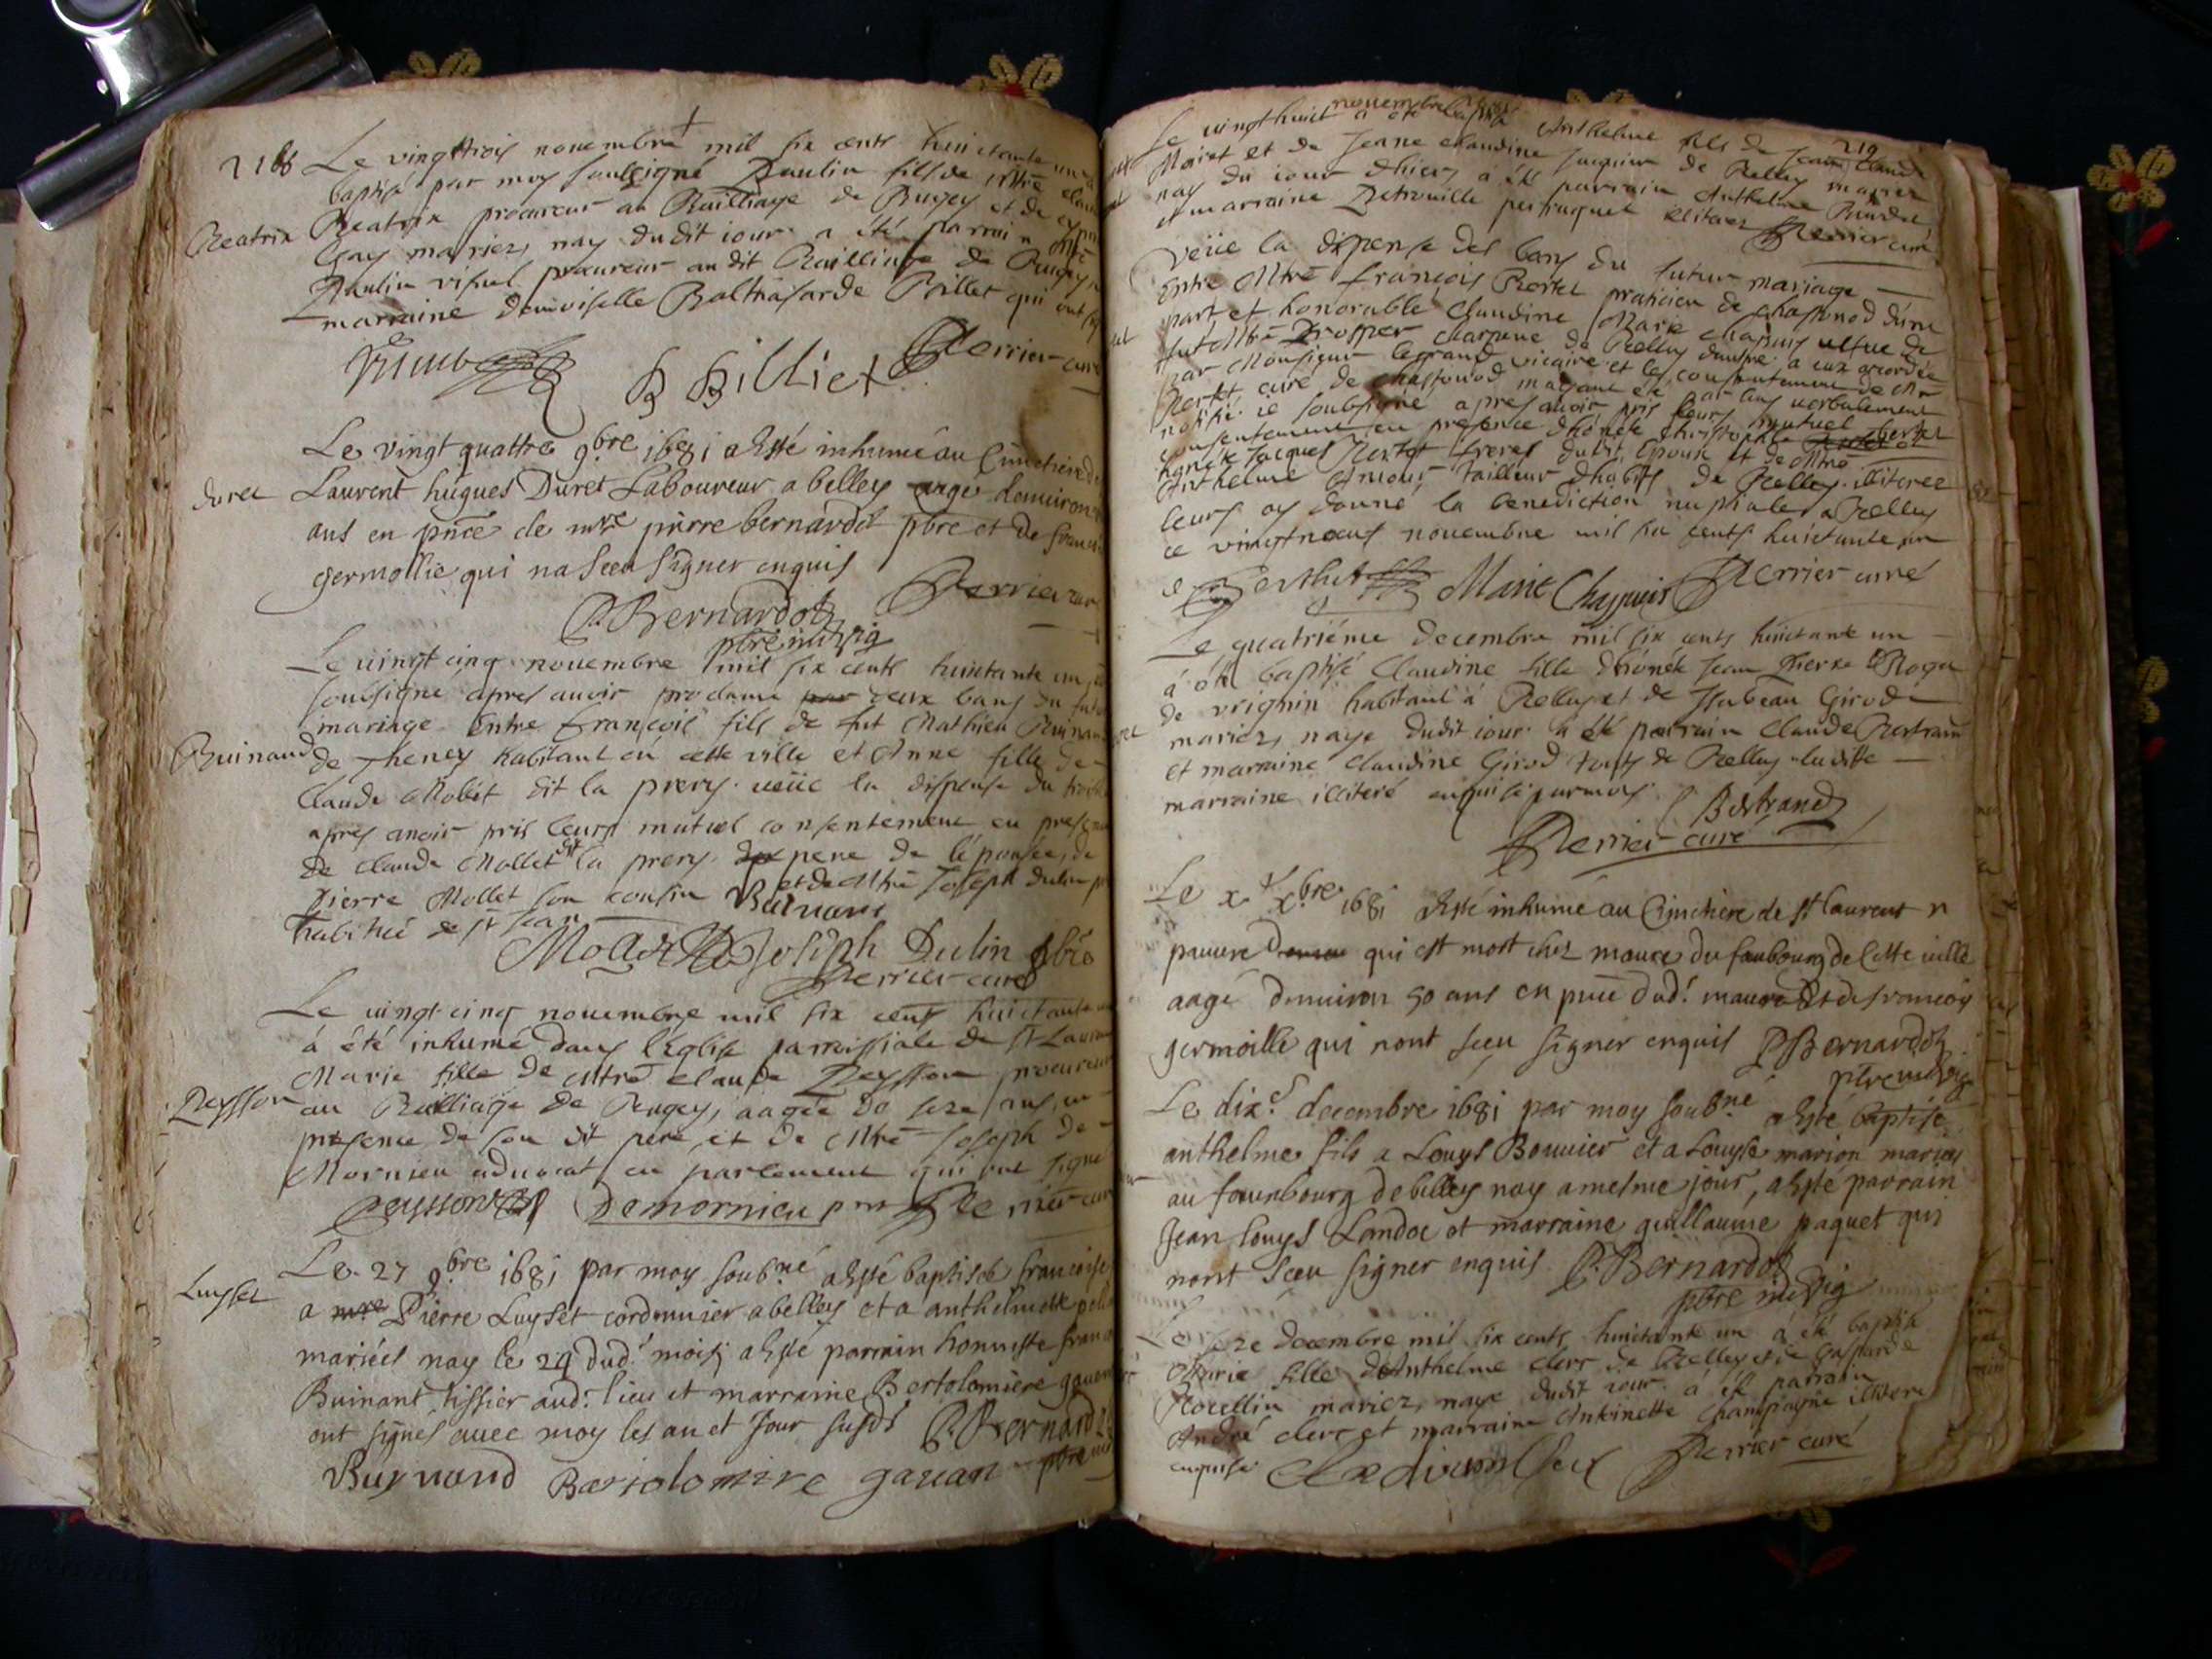 218
Le vingttrois novembre mil six cents huictante un a
baptisé par moy soubsigné Paulin fils de Mtre
Beatrix procureur au Bailliage de Bugey et de
Gay mariez, nay dudit jour a été parrain Mtre
Paulin procureur audit Bailliage de Bugey
marraine demoiselle Balthasarde Billet qui ont
B Billiet Perrier curé
Beatrix
Le vingt quattre 9bre 1681 a esté inhumé au Cimetiere de
Laurent hugues Duret Laboureur a belley aagé denviron
ans en pnce de mre pierre bernardot pbre et de franc
germollie qui na sceu signer enquis
P. Bernardot Perrier cur
pbre indig
duret
Le vingt cinq novembre mil six cents huictante un
soubsigné apres avoir proclamé deux bans du futur
mariage entre françois fils de fut Mathieu Buinan
de Theney habitant en cette ville et Anne fille de
Claude Mollet dit la prery veüe la dispense du
apres avoir pris leurs mutuel consentement en presence
de Claude Mollet dit la prery pere de lépousée, de
pierre Mollet son cousin et de Mtre Joseph dulin p
habitué de st Jean
Buinand
Buinand
Molet Joseph Dulin pbre
Perrier curé
Le vingt cinq novembre mil six cents huictante
à été inhumé dans l'église parroissiale de st Laurent
Marie fille de Mtre claude Peysson procureur
au Bailliage de Bugey, aagée de seze ans, en
presence de son dit pere et de Mtre Joseph de
Mornieu advocat en parlement qui ont signé
Peysson Demornieu pnt Perrier cur
Peysson
Le 27 9bre 1681 par moy soubne a esté baptisée francoise
a Pierre Luyset cordonnier a belley et a anthelmette
mariés nay le 24 dud. mois, a esté parrain honneste fran
Buinant tissier aud. lieu et marraine Bertolomiere gavan
ont signés avec moy les an et Jour susds P. Bernard
Buynand Bartolomire gavan pbre ind
Luyset
219
Le vingthuict novembre a été baptisé Anthelme fils de Jean Claude
Moiret et de Jeane claudine Juquier de Belley mariez
nay du jour dhier, a été parrain Anthelme
et marraine Petronille perruquet illiterez Perrier curé
Veüe la dispense des bans du futur mariage
Entre Mtre françois Bertet praticien de chastonod d'une
part et honorable Claudine Marie chapuis vefve de
fut Mtre Prosper charpene de Belley dautre a eux accordée
par Monsieur le grand vicaire et les consentement de Mr
Bertet curé de chastonod mayant été par luy verbalement
notifié je soubsigné apres avoir pris leurs mutuel
consentement en presence dhonete christophle bertet
honete Jacques Bertet freres dudit époux et de Mtre
Anthelme Amour tailleur dhabits de Belley illiterez
leurs ay donné la benediction nuptiale a Belley
ce vingtneuf novembre mil six cents huictante un
Berthet Marie Chappuis Perrier curé
Le quatriéme decembre mil six cents huictante un
à été baptisé Claudine fille dhonete Jean Pierre Roger
de vrignin habitant à Belley et de Isabeau Girod
mariez, naye dudit jour a été parrain Claude Bertrand
et marraine Claudine Girod touts de Belley ladite
marraine illiteré enquise par moy
Bertrand
Perrier curé
Le xe xbre 1681 a esté inhumé au Cimetiere de st laurent n
pauvre qui est mort chez maure du faubourg de Cette ville
aagé denviron 50 ans en pnce dud. maure et de francois
germoille qui nont sceu signer enquis P. Bernardot
pbre indig
Le dixe decembre 1681 par moy soubné a esté baptisé
anthelme fils a Louys Bouvier et a Louyse marion mariés
au faurbourg de belley nay a mesme jour, a esté parrain
Jean louys Landoz et marraine guillaume paquet qui
nont sceu signer enquis P. Bernardot
pbre indig
Le seze decembre mil six cents huictante un à été baptisé
Marie fille dAnthelme clerc de Belley et de Gasparde
Borellin mariez, naye dudit jour à été parrain
André clerc et marraine Antoinette champagne illiteré
enquise Perrier curé